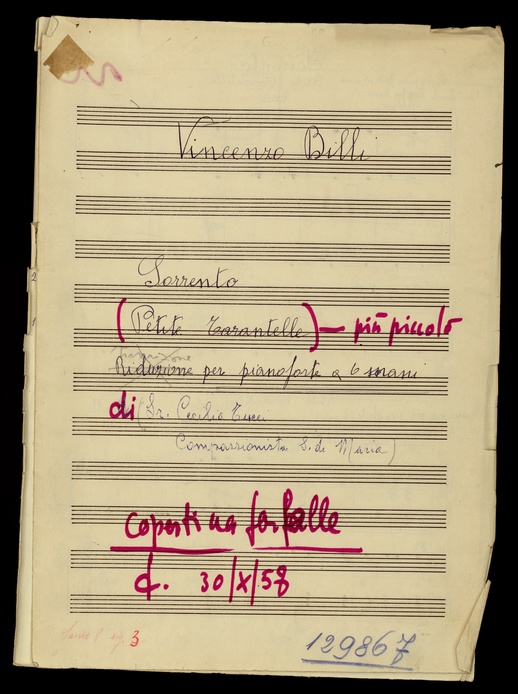 Vincenzo Billi
Sorrento
(Petite Tarantelle) — più piccolo
Riduzione per pianoforte a 6 mani
di (Sr. Cecilia Tucci
Compassionista S. di Maria)
copertina farfalle
d. 30/X/58
3
129867